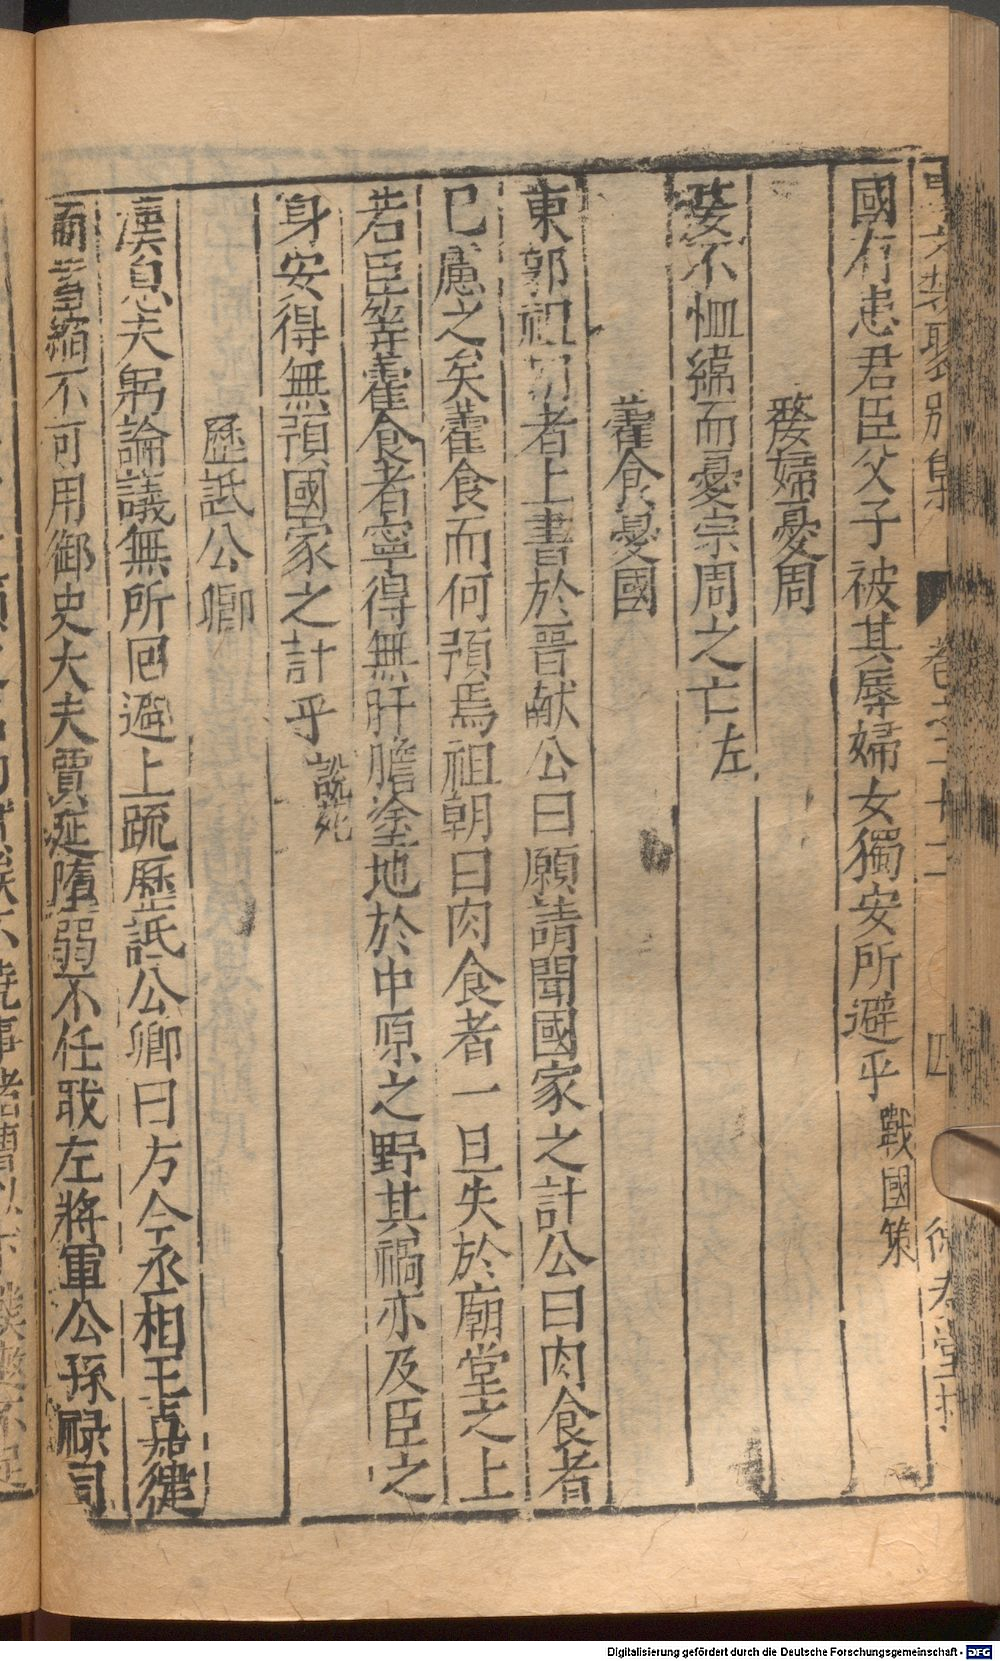 國有患君臣父子被其辱婦女獨安所避乎戰國策
嫠婦憂周
嫠不恤緯而憂宗周之亡左
藿食憂國
東郭祖朝者上書於晉献公曰願請聞國家之計公曰肉食者
已慮之矣藿食而何預焉祖朝曰肉食者一旦失於廟堂之上
若臣等藿食者寧得無肝膽塗地於中原之野其禍亦及臣之
身安得無預國家之計乎說苑
歷詆公卿
漢息夫躬論議無所囘避上疏歷詆公卿曰方今丞相王嘉健
而蓄縮不可用御史大夫賈延墮弱不任职左將軍公孫祿司
別集 卷之二十二 四
Digitalisierung gefördert durch die Deutsche Forschungsgemeinschaft - DFG